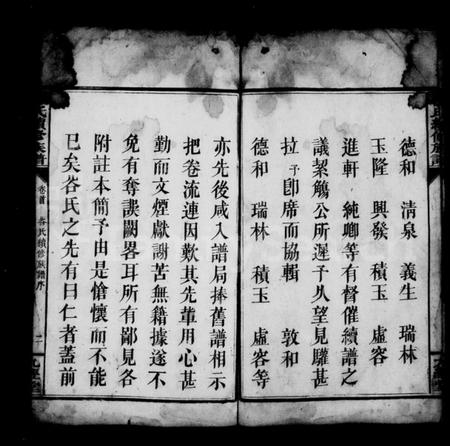 德和 清泉 義生 瑞林
玉隆 興發 積玉 虛容
進軒 純卿等有督催續譜之
議絜觴公所遲予久望見驩甚
拉予卽席而協輯 敦和
德和 瑞林 積玉 虛容等
亦先後咸入譜局捧舊譜相示
把卷流連因歎其先軰用心甚
勤而文煙獻謝苦無籍據遂不
免有奪誤闕畧耳所有鄙見各
附註本簡予由是愴懷而不能
已矣昝氏之先有曰仁者蓋前
卷首 昝氏續修族譜序 二